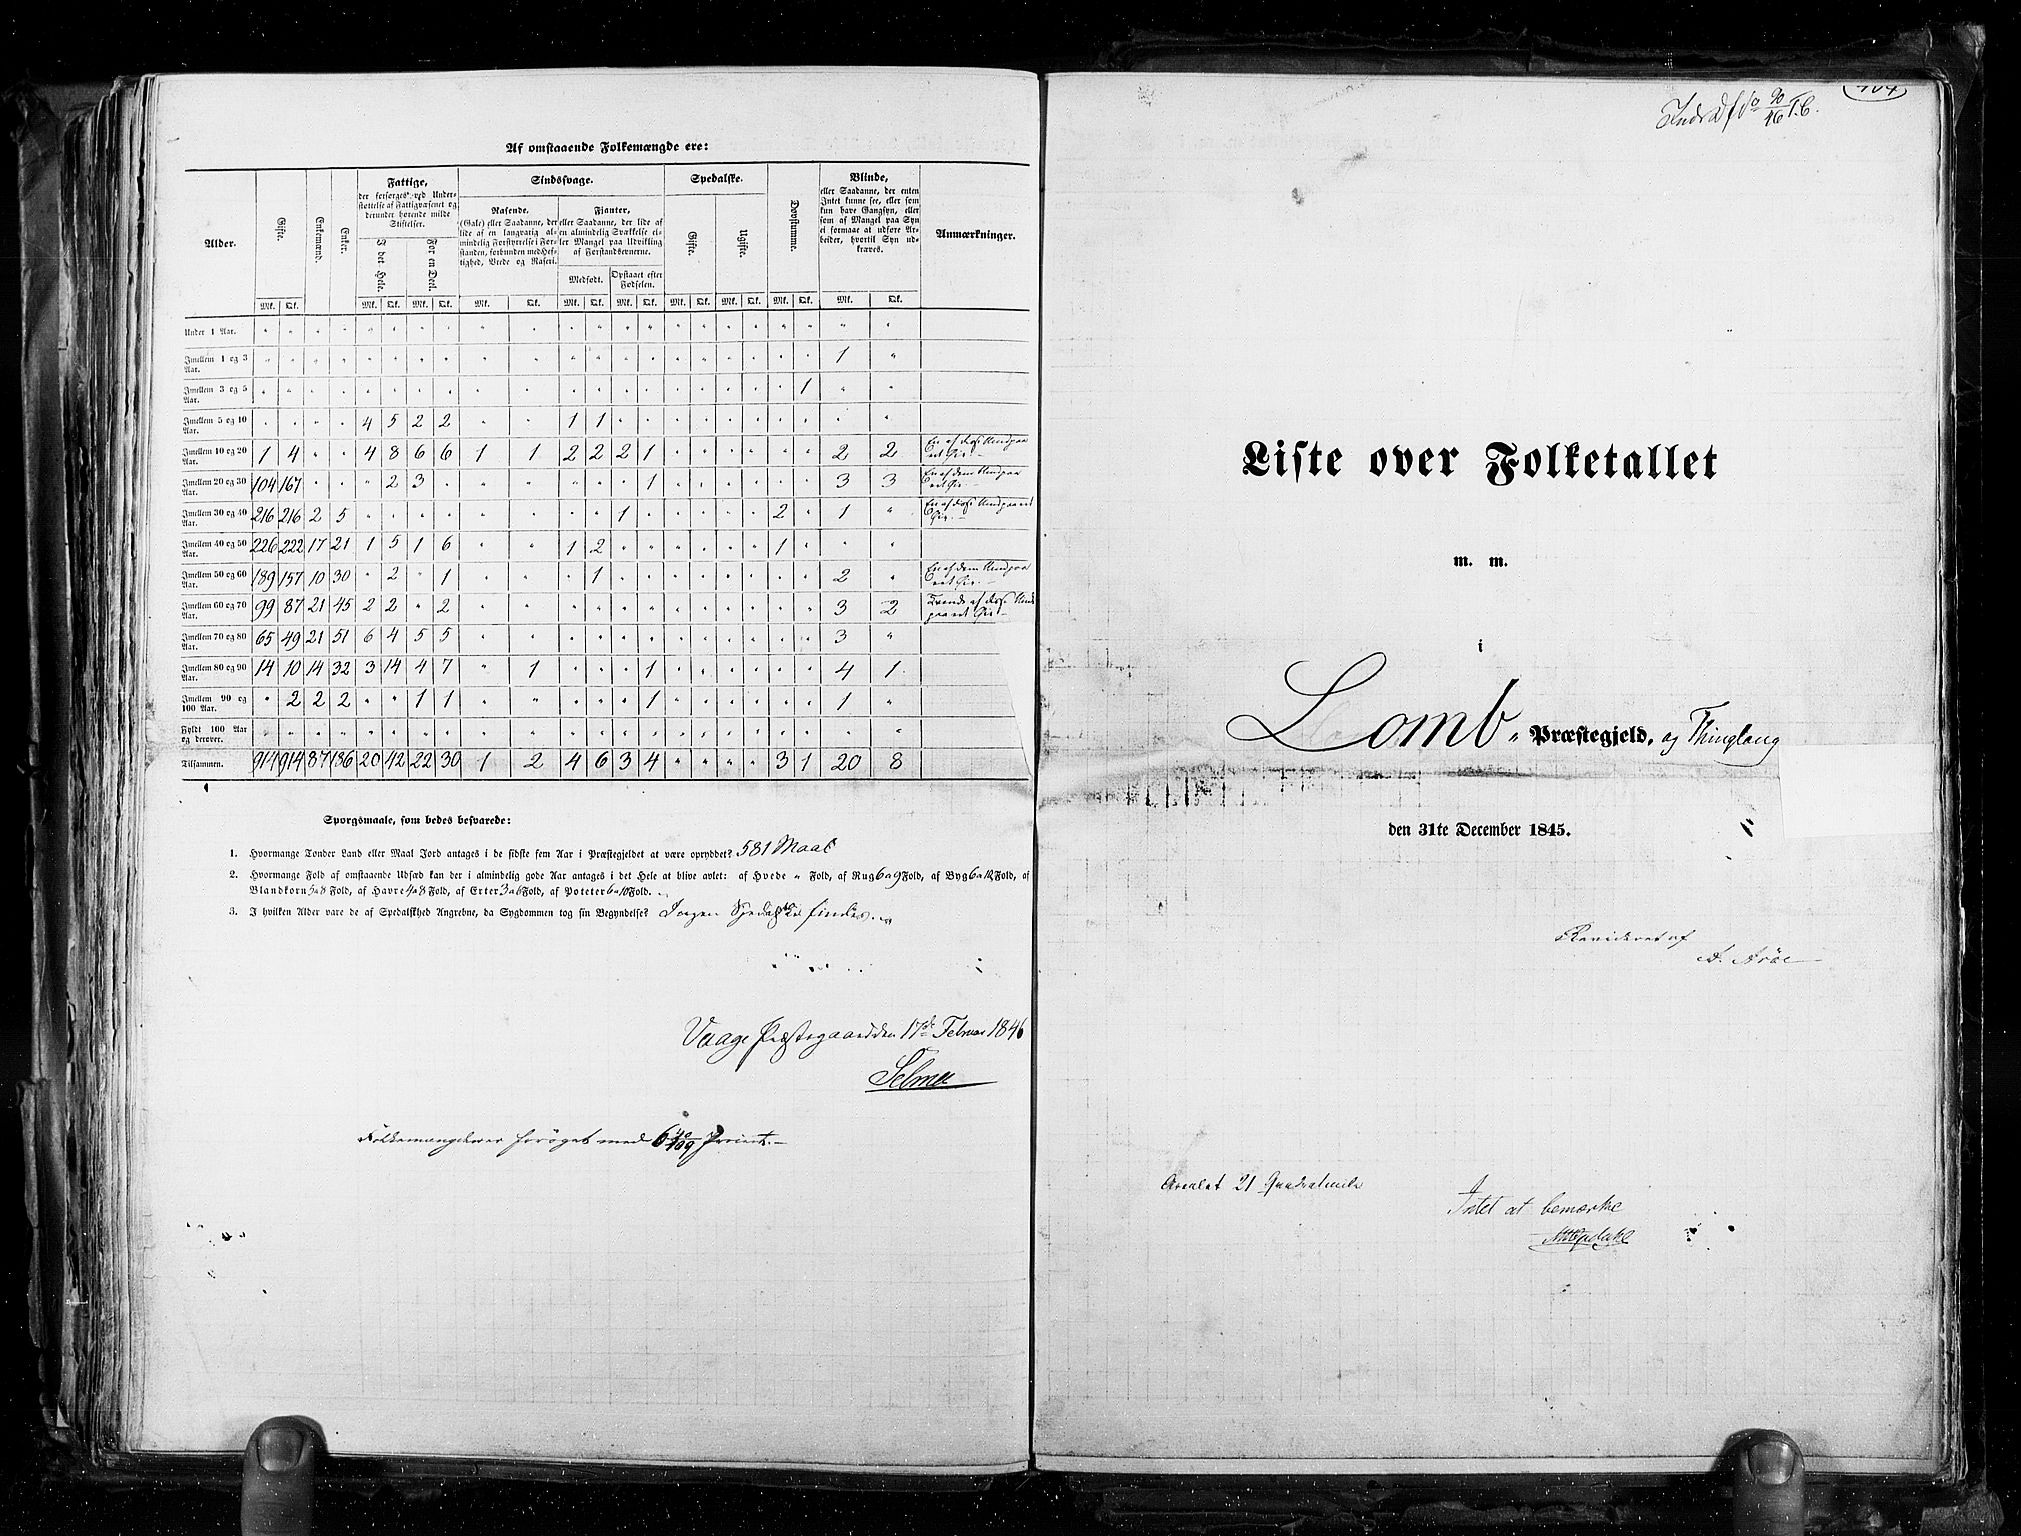 Af omstaaende Folkemængde ere:
Alder. Gifte. Enkemænd. Enker. Fattige, Sindssvage. Spedalske. Døvstumme. Blinde, Anmærkninger.
der forsørges ved Under-
støttelse af Fattigvæsenet og
derunder hørende milde
Stiftelser.
I det Hele. For en Deel.
Rasende.
(Gale) eller Saadanne, der
lide af en langvarig al-
mindelig Forstyrrelse i For-
standen, forbunden med Hef-
tighed, Vrede og Raseri.
Fjanter,
eller Saadanne, der lide af
en almindelig Svækkelse ei-
ler Mangel paa Udvikling
af Forstandsevnerne.
Medfødt. Opstaaet efter Fødselen.
Gifte. Ugifte.
eller Saadanne, der enten
Intet kunne see, eller som
kun have Gangsyn, eller
som af Mangel paa Syn
ei formaae at udføre Ar-
beider, hvortil Syn ud-
kræves.
Mk. Qk. Mk. Qk. Mk. Qk. Mk. Qk. Mk. Qk. Mk. Qk. Mk. Qk. Mk. Qk. Mk. Qk. Mk. Qk.
Under 1 Aar. " " " " " " " " " " " " " " " " " " " " " "
Imellem 1 og 3 Aar. " " " " " " " " " " " " " " " " " " " " 1 "
Imellem 3 og 5 Aar. " " " " " " " " " " " " " " " " " " " 1 " "
Imellem 5 og 10 Aar. " " " " 4 5 2 2 " " 1 1 " " " " " " " " " "
Imellem 10 og 20 Aar. 1 4 " " 4 8 6 6 1 1 2 2 2 1 " " " " " " 2 2
Imellem 20 og 30 Aar. 104 167 " " " 2 3 " " " " " " 1 " " " " " " 3 3
Imellem 30 og 40 Aar. 216 216 2 5 " " " " " " " " 1 " " " " " 2 " 1 "
Imellem 40 og 50 Aar. 226 222 17 21 1 5 1 6 " " 1 2 " " " " " " 1 " " "
Imellem 50 og 60 Aar. 189 157 10 30 " 2 " 1 " " " 1 " " " " " " " " 2 "
Imellem 60 og 70 Aar. 99 87 21 45 2 2 " 2 " " " " " " " " " " " " 3 2
Imellem 70 og 80 Aar. 65 49 21 51 6 4 5 5 " " " " " " " " " " " " 3 "
Imellem 80 og 90 Aar. 14 10 14 32 3 14 4 7 " 1 " " " 1 " " " " " " 4 1
Imellem 90 og 100 Aar. " 2 2 2 " " 1 1 " " " " " 1 " " " " " " 1 "
Fyldt 100 Aar og derover. " " " " " " " " " " " " " " " " " " " " " "
Tilsammen. 914 914 87 186 20 42 22 30 1 2 4 6 3 4 " " " " 3 1 20 8
Spørgsmaale, som bedes besvarede:
1. Hvormange Tønder Land eller Maal Jord antages i de sidste fem Aar i Præstegjeldet at være opryddet? 581 Maal
2. Hvormange Fold af omstaaende Udsæd kan der i almindelig gode Aar antages i det Hele at blive avlet: af Hvede " Fold, af Rug 6 a 9 Fold, af Byg 6 a 12 Fold, af
Blandkorn 5 a 8 Fold, af Havre 4 a 8 Fold, af Erter 3 a 6 Fold, af Poteter 6 a 10 Fold.
3. I hvilken Alder vare de af Spedalskhed Angrebne, da Sygdommen tog sin Begyndelse? Ingen Spedalske findes.
Vaage Præstegaard den 17de Februar 1846
Selmer
Folkemængden er forøget med 6 40/109 Procent.
Liste over Folketallet
m. m.
i
Lomb " Præstegjeld, og Thinglaug
den 31te December 1845.
Revideret af
A. Arøe
Arealet 21 Quadratmile
Intet at bemærke